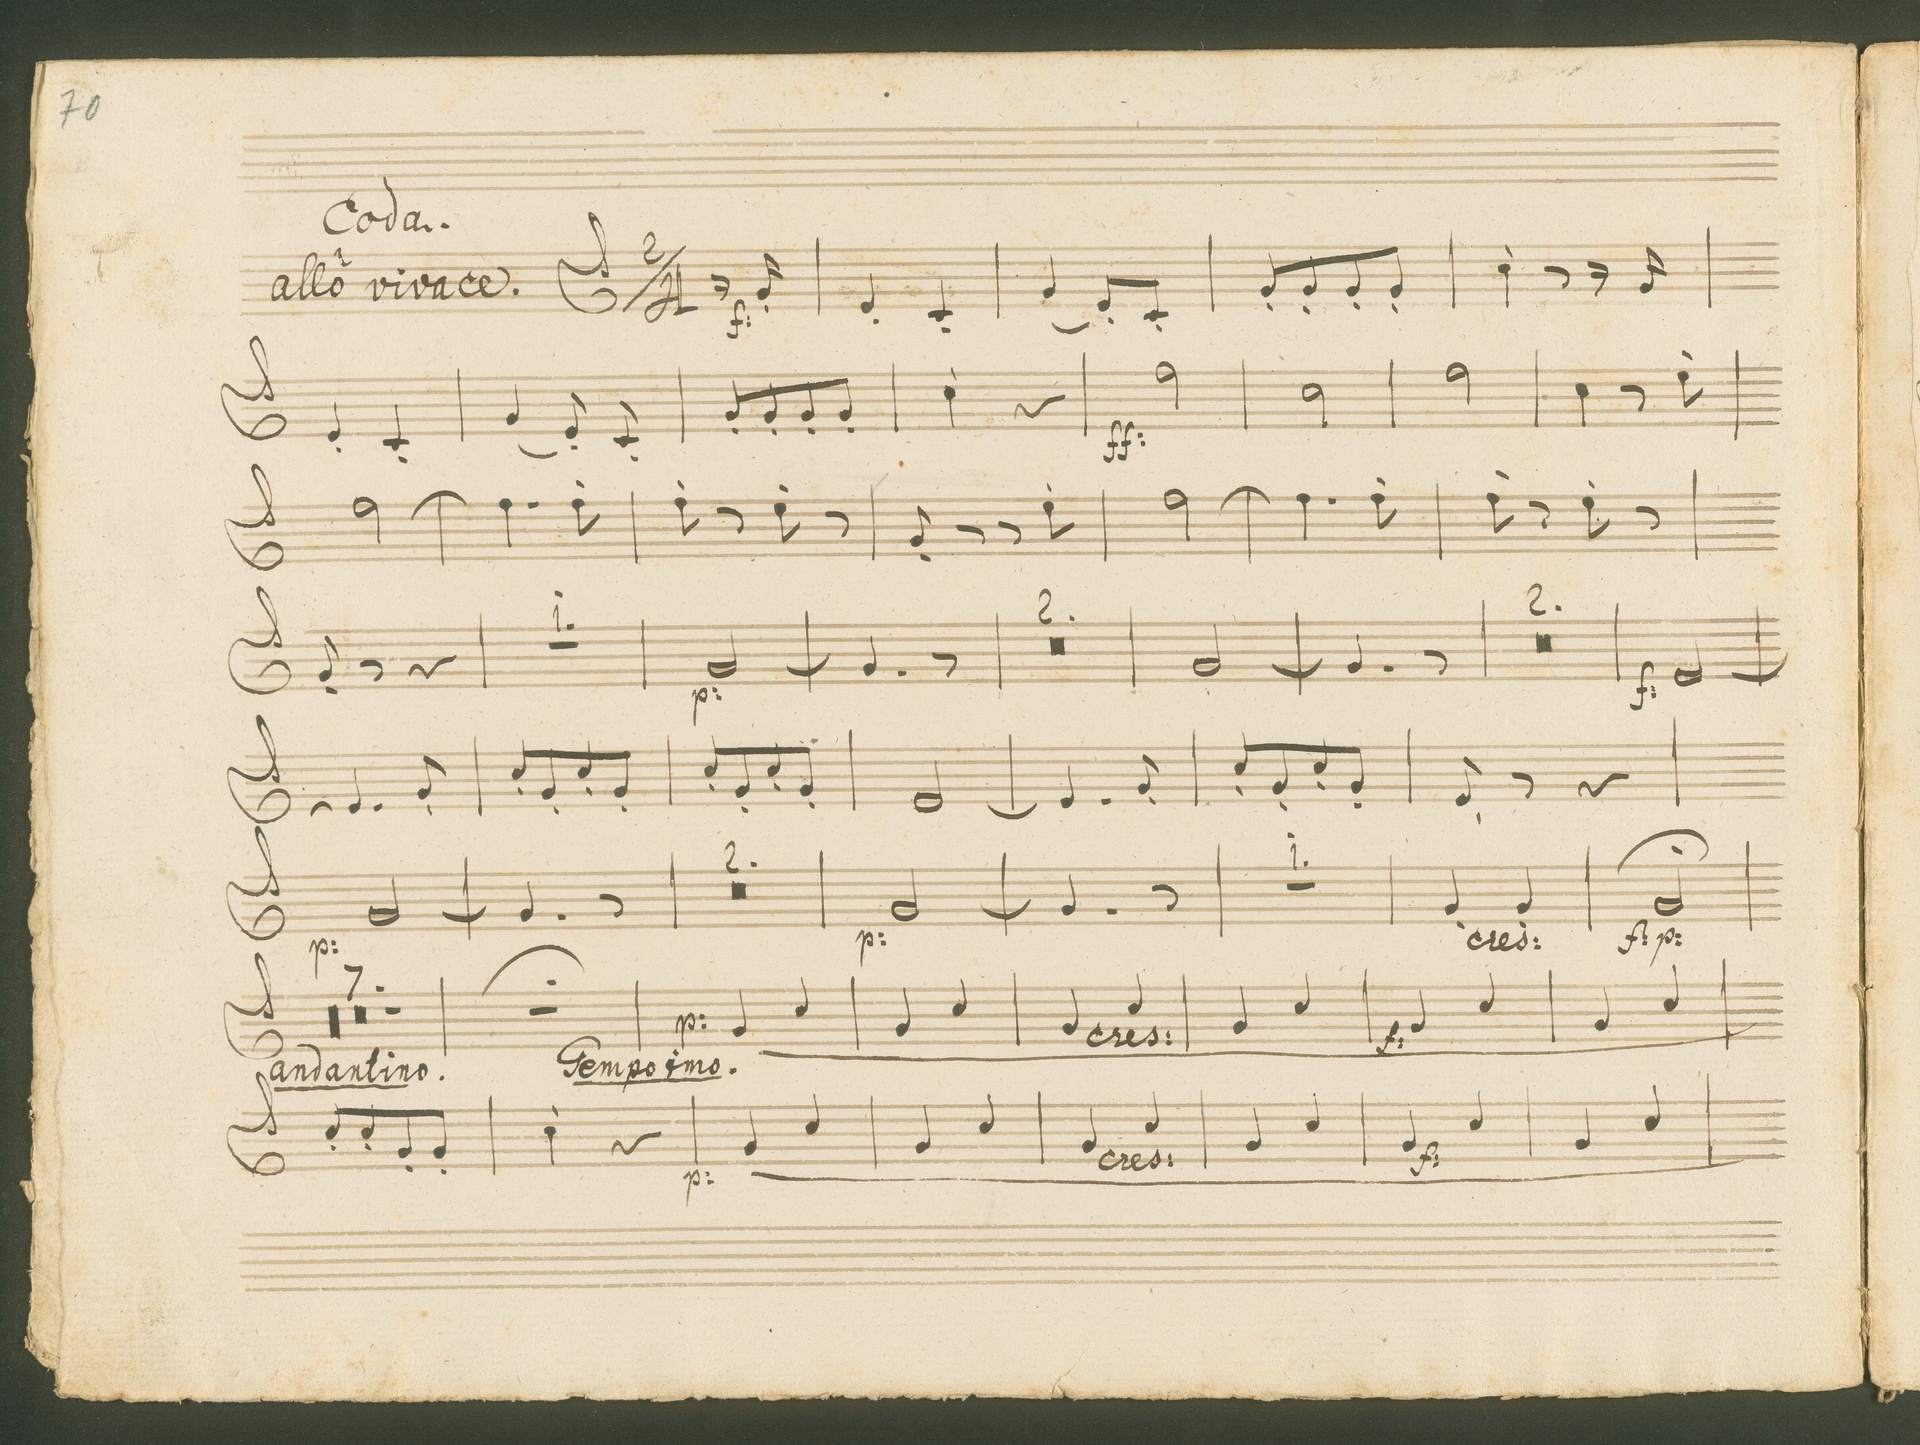 70
Coda.
allo vivace. 2/4
f:
ff:
1. 2. 2.
p: f:
2. 1.
p: p: cres: f: p:
7.
p: cres: f:
andantino. Tempo imo.
p: cres: f: